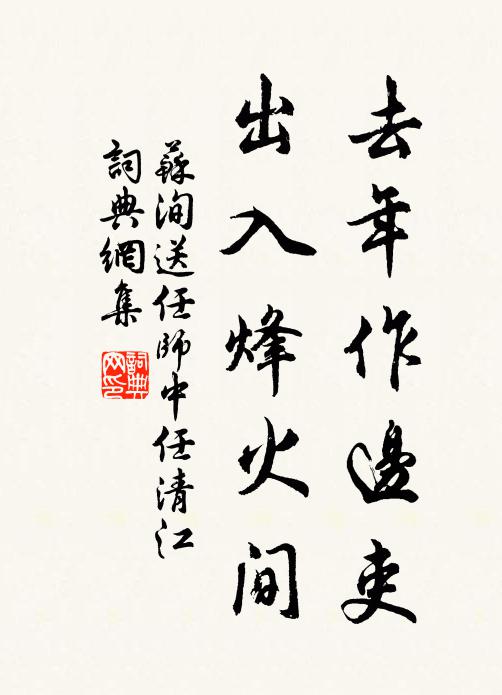 去年作邊吏
出入烽火間
蘇洵送任師中任清江
詞典網集
詞典网印